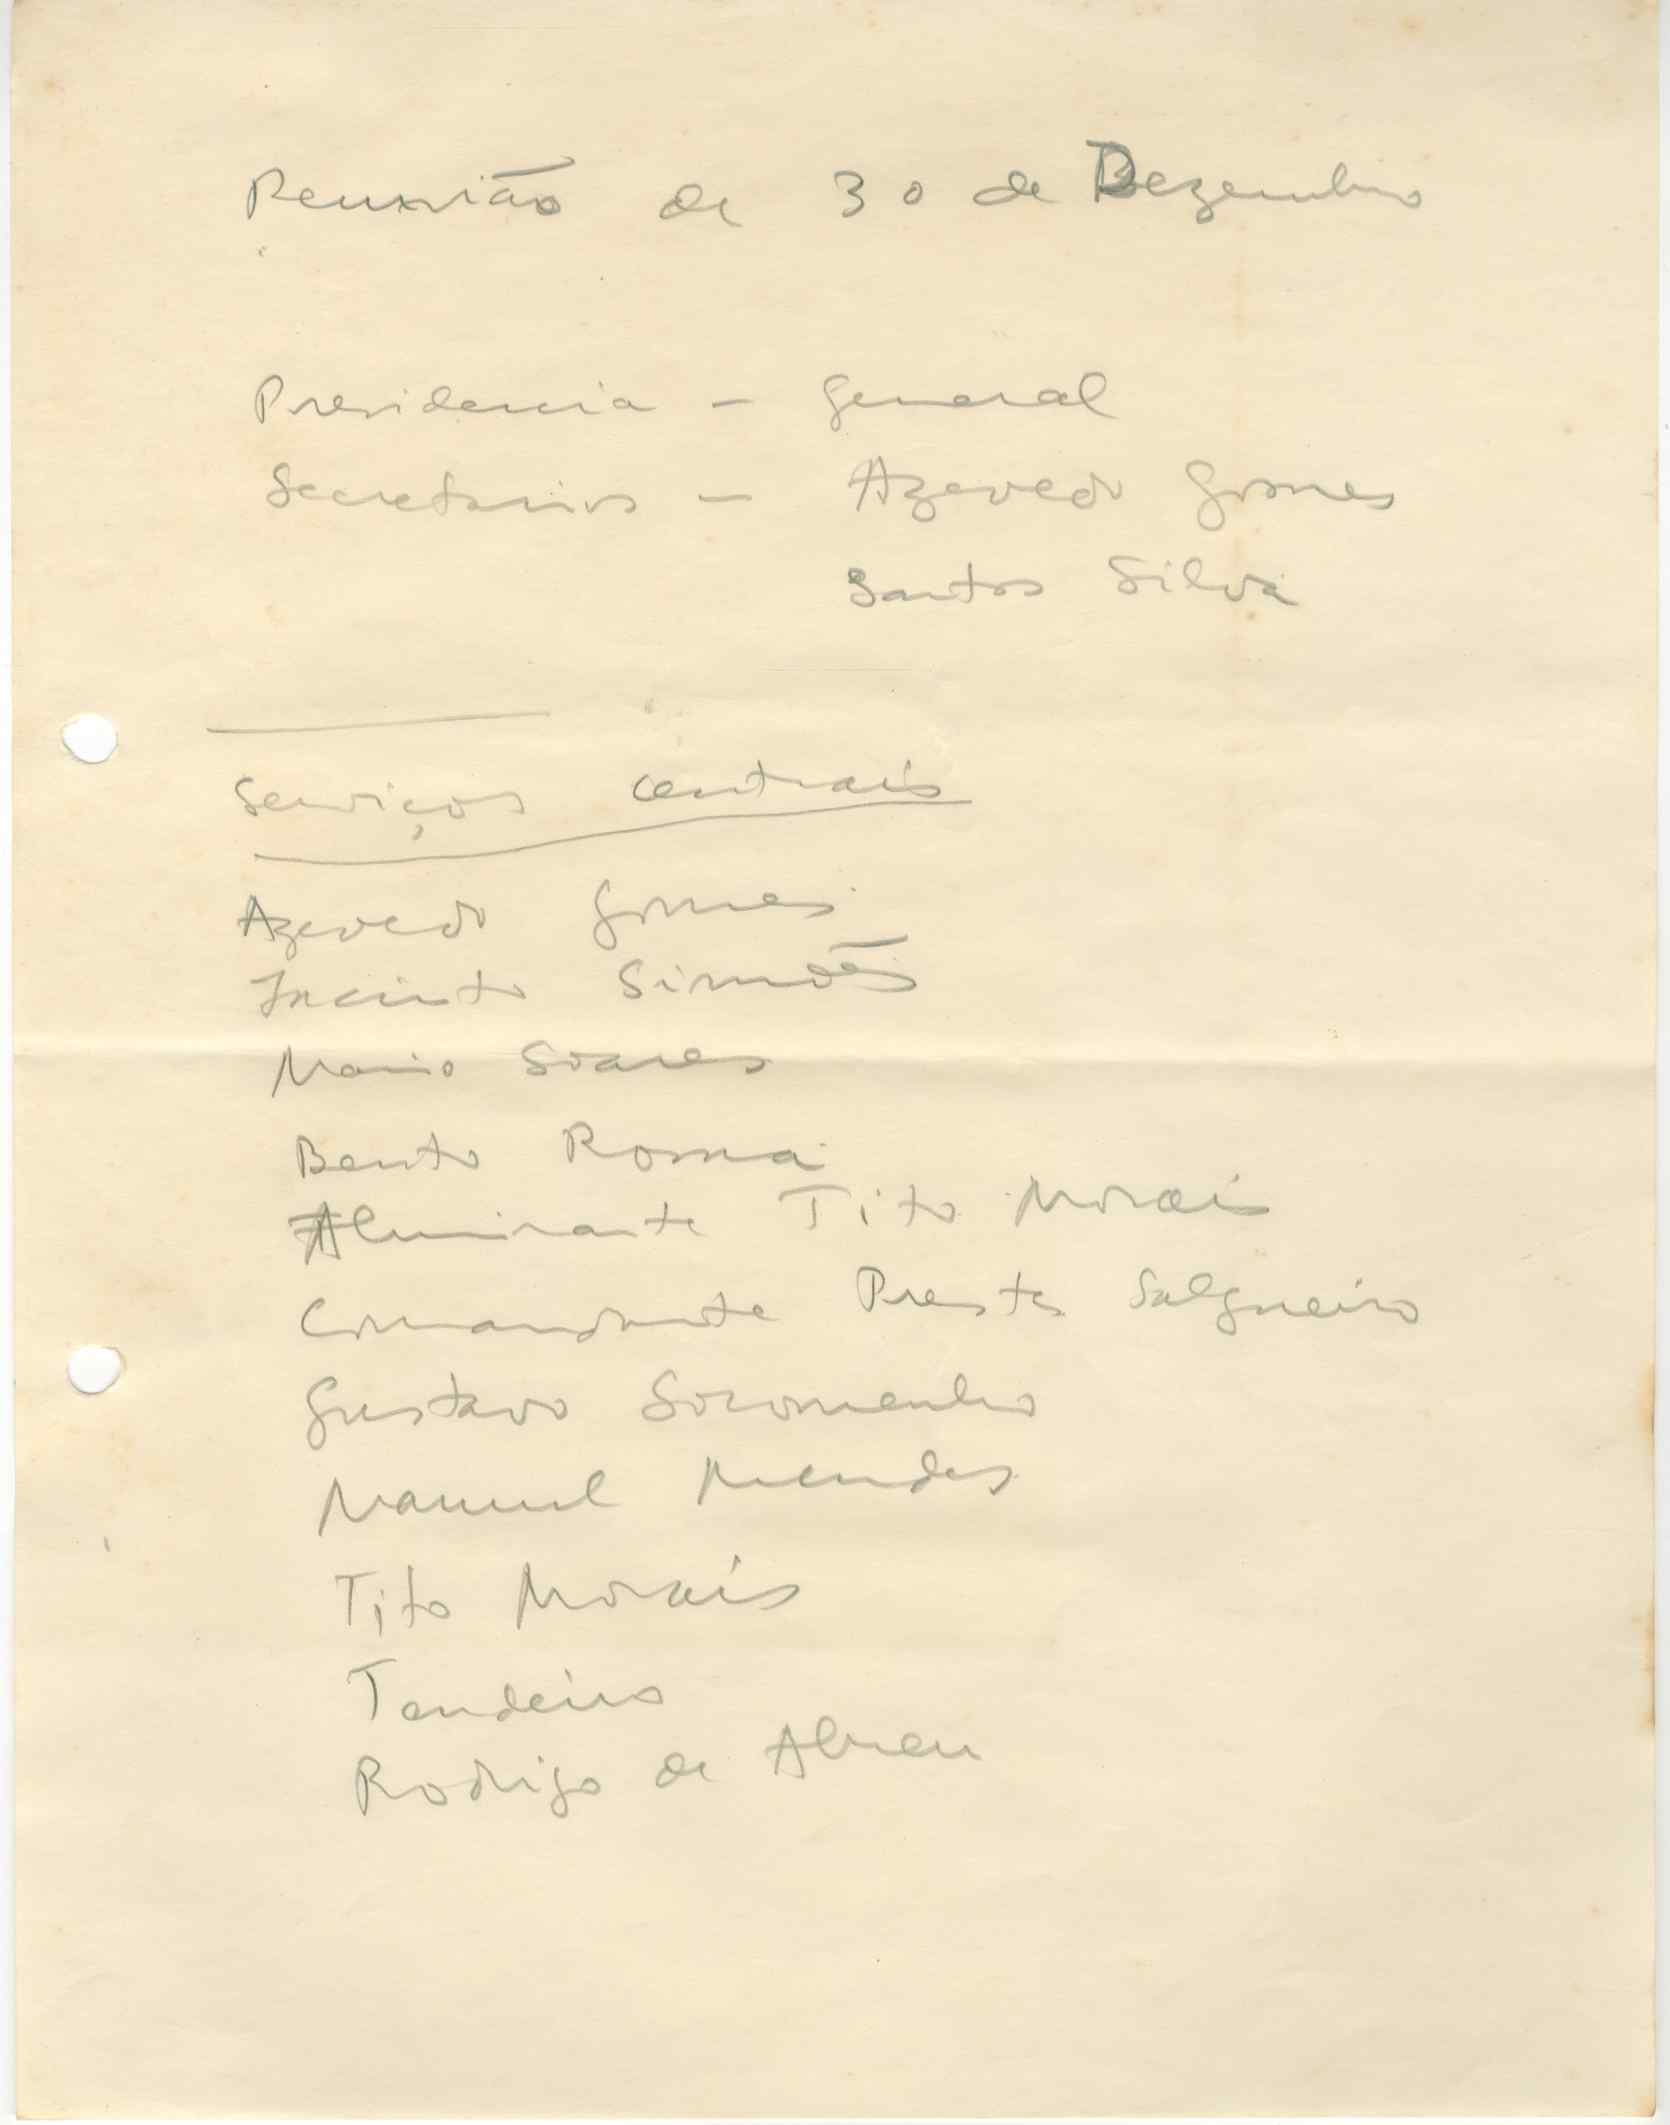 Reunião de 30 de Dezembro
Presidencia - General
Secretarios - Azevedo Gomes
Santos Silva
Serviços centrais
Azevedo Gomes
Jacinto Simões
Mario Soares
Bento Roma
Almirante Tito Morais
Comandante Prestes Salgueiro
Gustavo Soromenho
Manuel Mendes
Tito Morais
Tendeiro
Rodrigo de Abreu